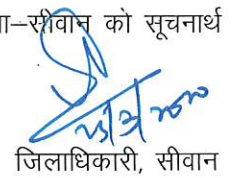 –सीवान को सूचनार्थ
जिलाधिकारी, सीवान